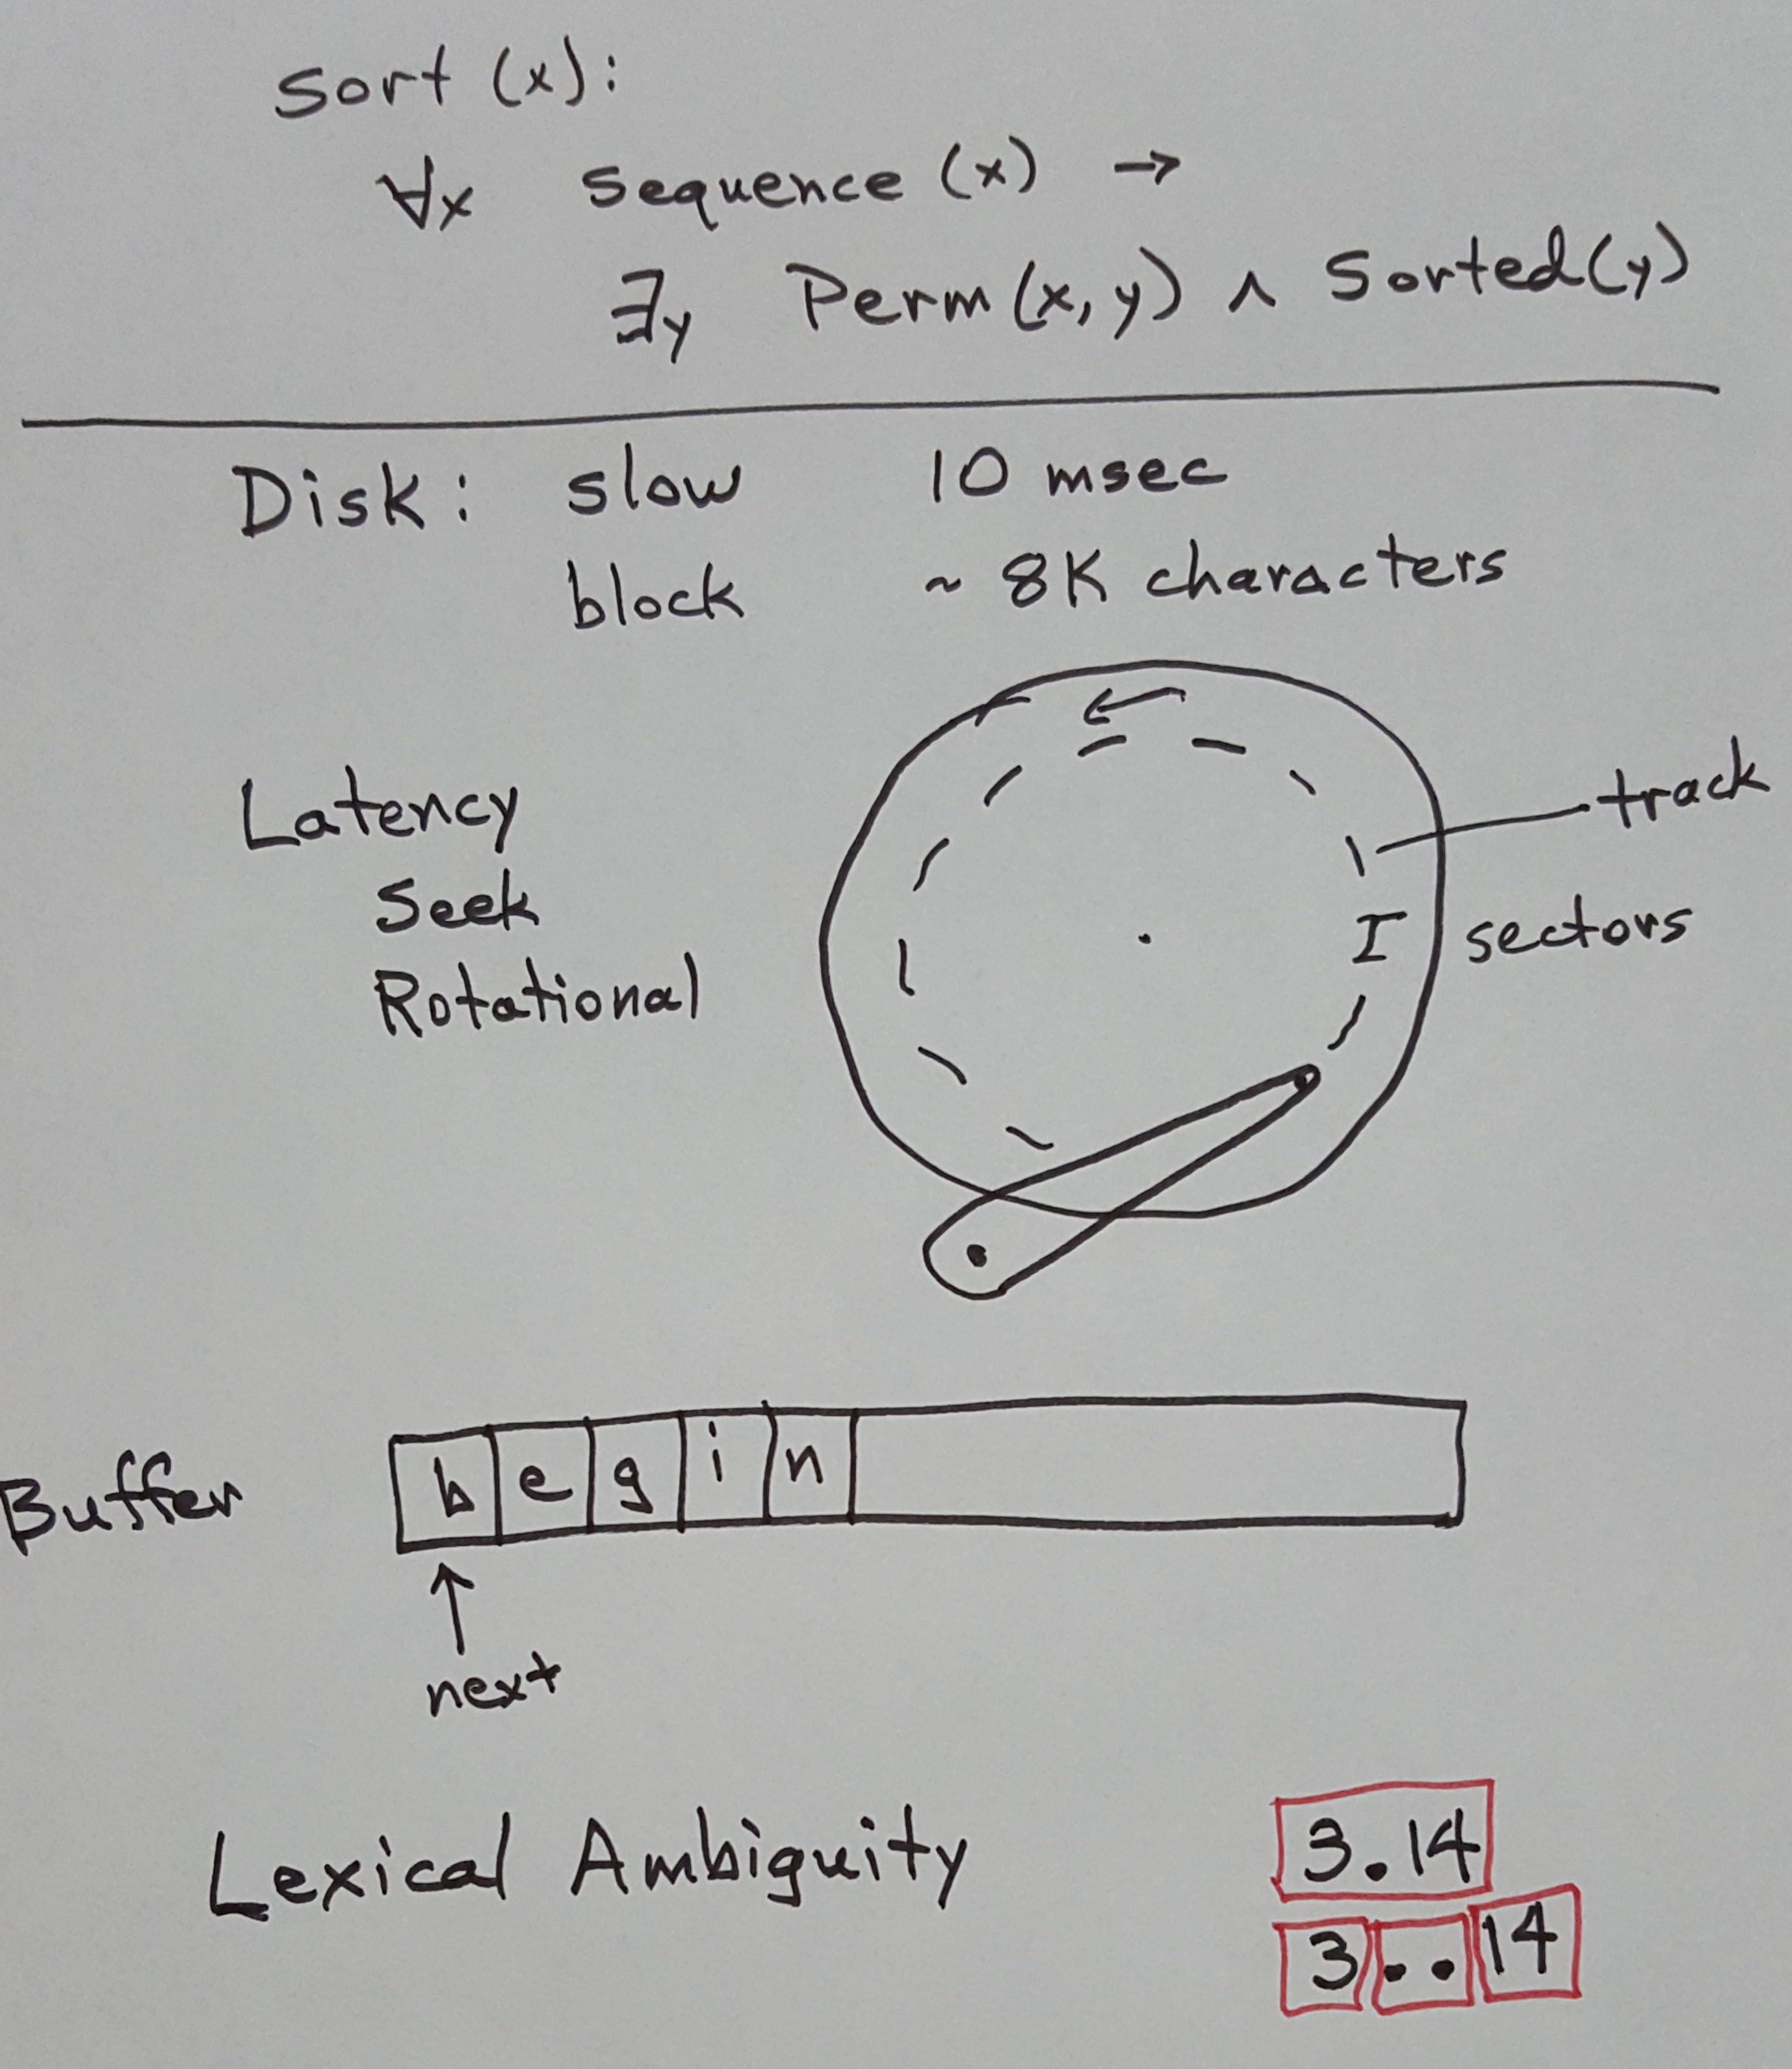 Sort (x):
∀x sequence (x) →
∃y Perm (x, y) ∧ Sorted(y)
Disk: slow 10 msec
block ~ 8K characters
Latency
Seek
Rotational
track
sectors
Buffer b e g i n
next
Lexical Ambiguity
3.14
3 .. 14